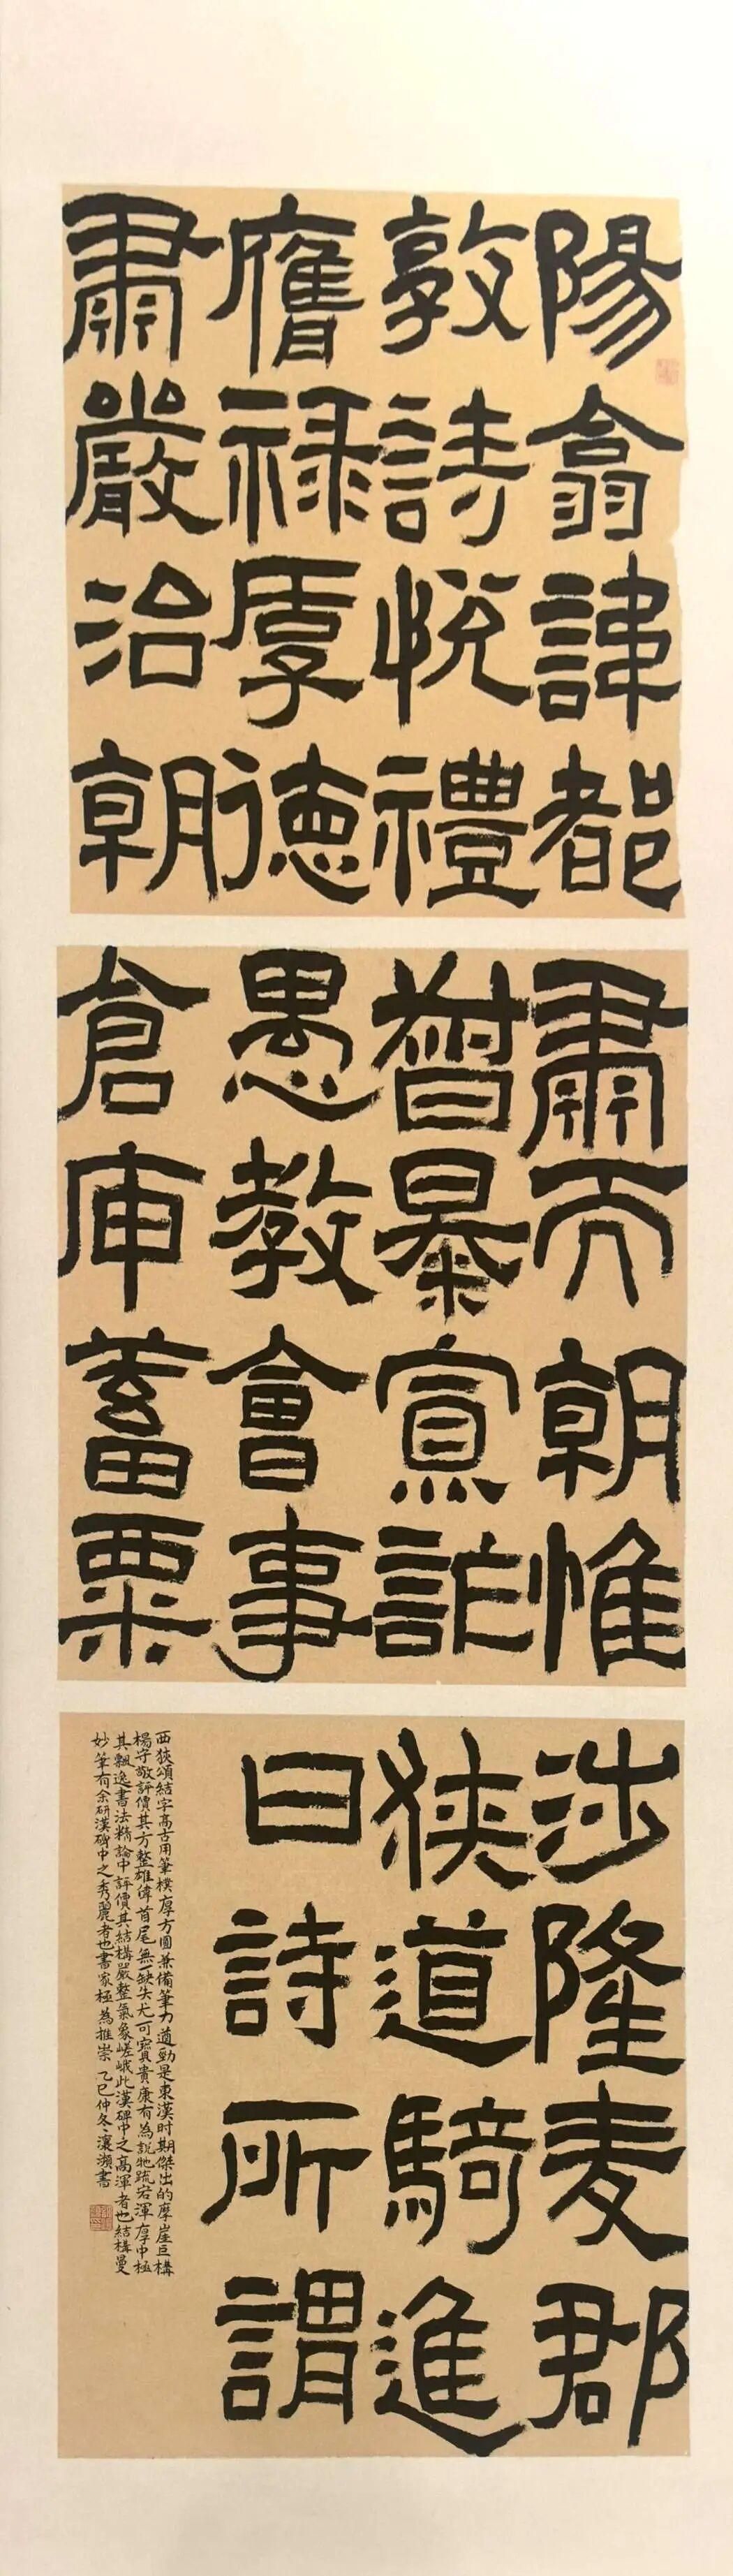 陽翕諱都
敦詩悦禮
膺禄厚德
肅嚴治朝
肅而朝惟
暴寡詐
愚教會事
倉庫蓄粟
涉隆麦郡
狹道騎進
曰詩所謂
西狹頌結字高古用筆樸厚方圓兼備筆力遒勁是東漢时期傑出的摩崖巨構
楊守敬評價其方整雄偉首尾無一缺失尤可寶貴康有為説牠疏宕渾厚中極
其飄逸書法精論中評價其結構嚴整氣象嵯峨此漢碑中之高渾者也結構曼
妙筆有余研漢碑中之秀麗者也書家極為推崇 乙巳仲冬瀼濒書